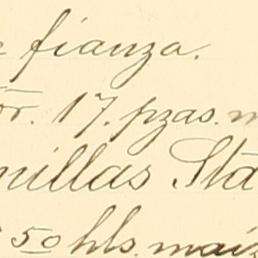 fianza.
17. pzas. m
nillas Sta
50 hls. maiz